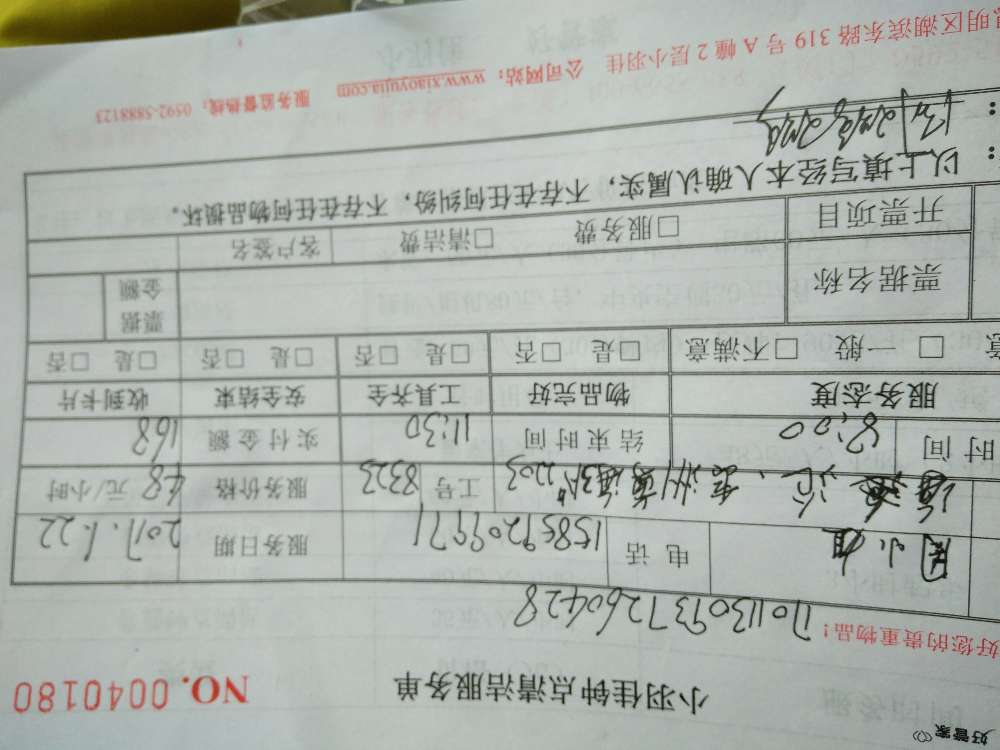 小羽佳钟点清洁服务单 NO.0040180
好您的贵重物品!
1701130937260428
周小姐 电话 15859209971 服务日期 2017.1.22
工号 8323 服务价格 48元/小时
时间 8:00 结束时间 11:30 实付金额 168
服务态度 物品完好 工具齐全 安全结束 收到卡片
意 □一般 □不满意 □是 □否 □是 □否 □是 □否 □是 □否
票据名称 票据金额
开票项目 □服务费 □清洁费 客户签名
以上填写经本人确认属实,不存在任何纠纷,不存在任何物品损坏。
明区湖滨东路 319 号 A 幢 2 层小羽佳 公司网站:www.xiaoyujia.com 服务监督热线:0592-5888123
好管家